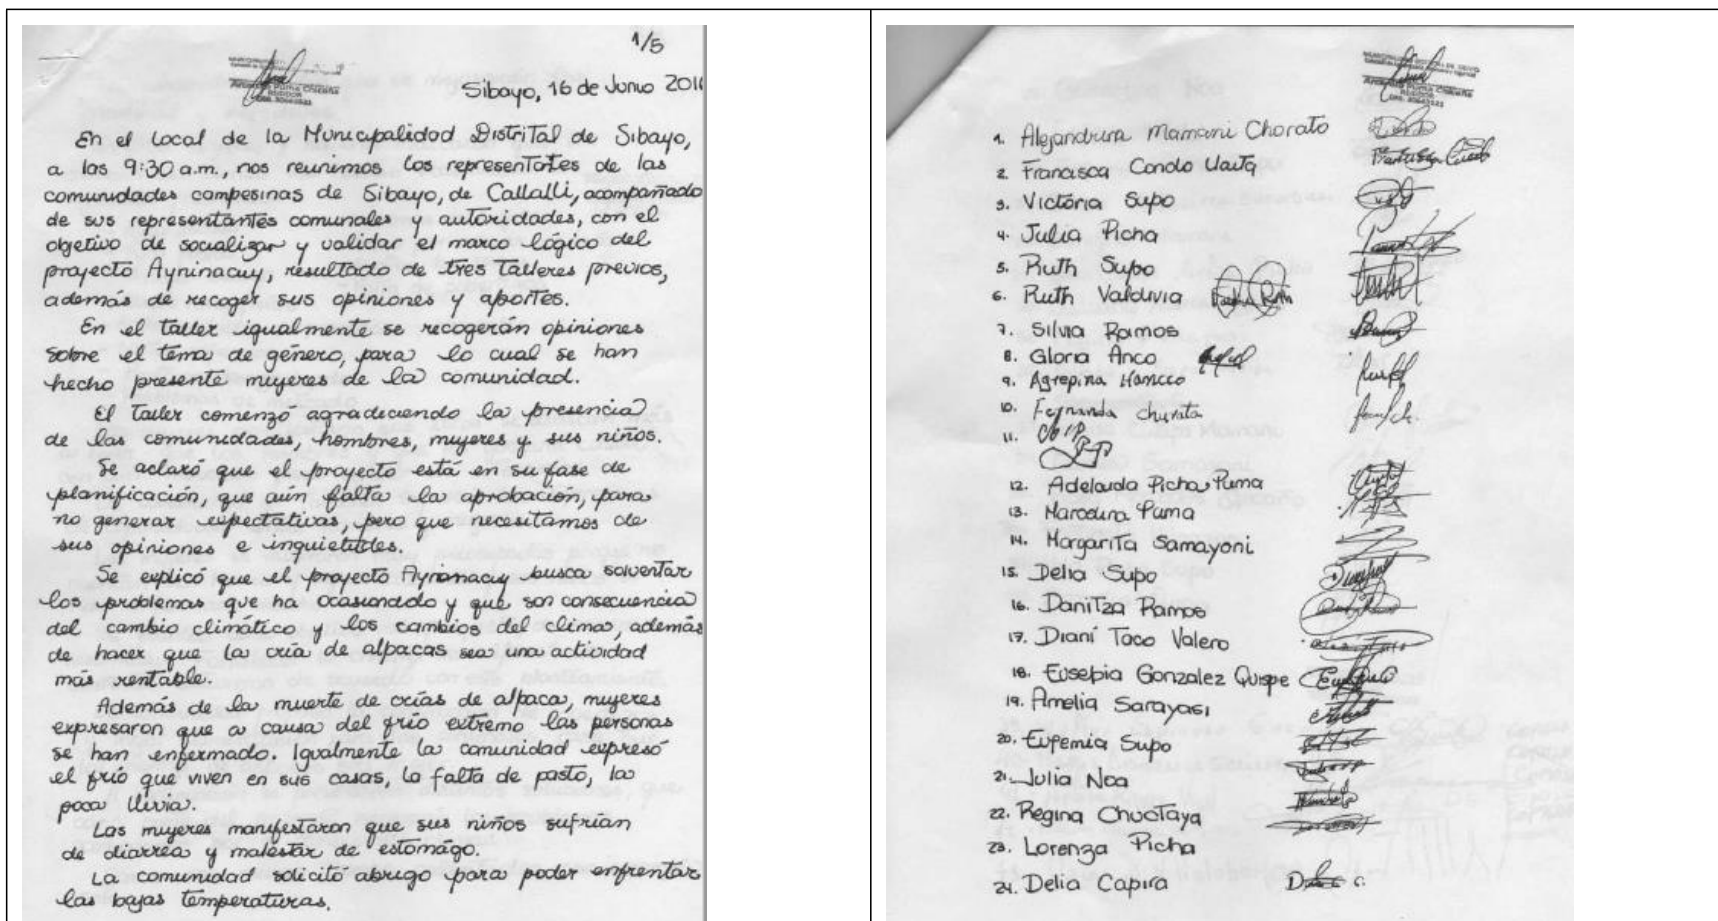 1/5
Sibayo, 16 de Junio 201
En el local de la Municipalidad Distrital de Sibayo,
a las 9:30 a.m., nos reunimos los representantes de las
comunidades campesinas de Sibayo, de Callalli, acompañado
de sus representantes comunales y autoridades, con el
objetivo de socializar y validar el marco lógico del
proyecto Ayninacuy, resultado de tres talleres previos,
además de recoger sus opiniones y aportes.
En el taller igualmente se recogerán opiniones
sobre el tema de género, para lo cual se han
hecho presente mujeres de la comunidad.
El taller comenzó agradeciendo la presencia
de las comunidades, hombres, mujeres y sus niños.
Se aclaró que el proyecto está en su fase de
planificación, que aún falta la aprobación, para
no generar expectativas, pero que necesitamos de
sus opiniones e inquietudes.
Se explicó que el proyecto Ayninacuy busca solventar
los problemas que ha ocasionado y que son consecuencia
del cambio climático y los cambios del clima, además
de hacer que la cría de alpacas sea una actividad
más rentable.
Además de la muerte de crías de alpaca, mujeres
expresaron que a causa del frío extremo las personas
se han enfermado. Igualmente la comunidad expresó
el frío que viven en sus casas, la falta de pasto, la
poca lluvia.
Las mujeres manifestaron que sus niños sufrían
de diarrea y malestar de estomágo.
La comunidad solicitó abrigo para poder enfrentar
las bajas temperaturas.
1. Alejandrina Mamani Chorato
2. Francisca Condo
3. Victoria Supo
4. Julia Picha
5. Ruth Supo
6. Ruth Valdivia
7. Silvia Ramos
8. Gloria Anco
9. Agrepina Hancco
10. Fernanda Churata
11.
12. Adelaida Picha Puma
13. Puma
14. Margarita Samayoni
15. Delia Supo
16. Danitza Ramos
17. Diani Taco Valero
18. Eusebia Gonzalez Quispe
19. Amelia Sarayasi
20. Eufemia Supo
21. Julia Noa
22. Regina Chuctaya
23. Lorenza Picha
24. Delia Capira